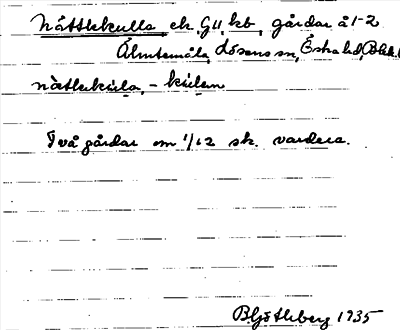 Nättlekulla ek, Gu, kb, gårdar å 1-2
Älmtemåla, Lösens sn, Östra hd, Blek.
nätlekula, - kúlan
Två gårdar om 1/12 sk. vardera.
B. Götleberg 1935